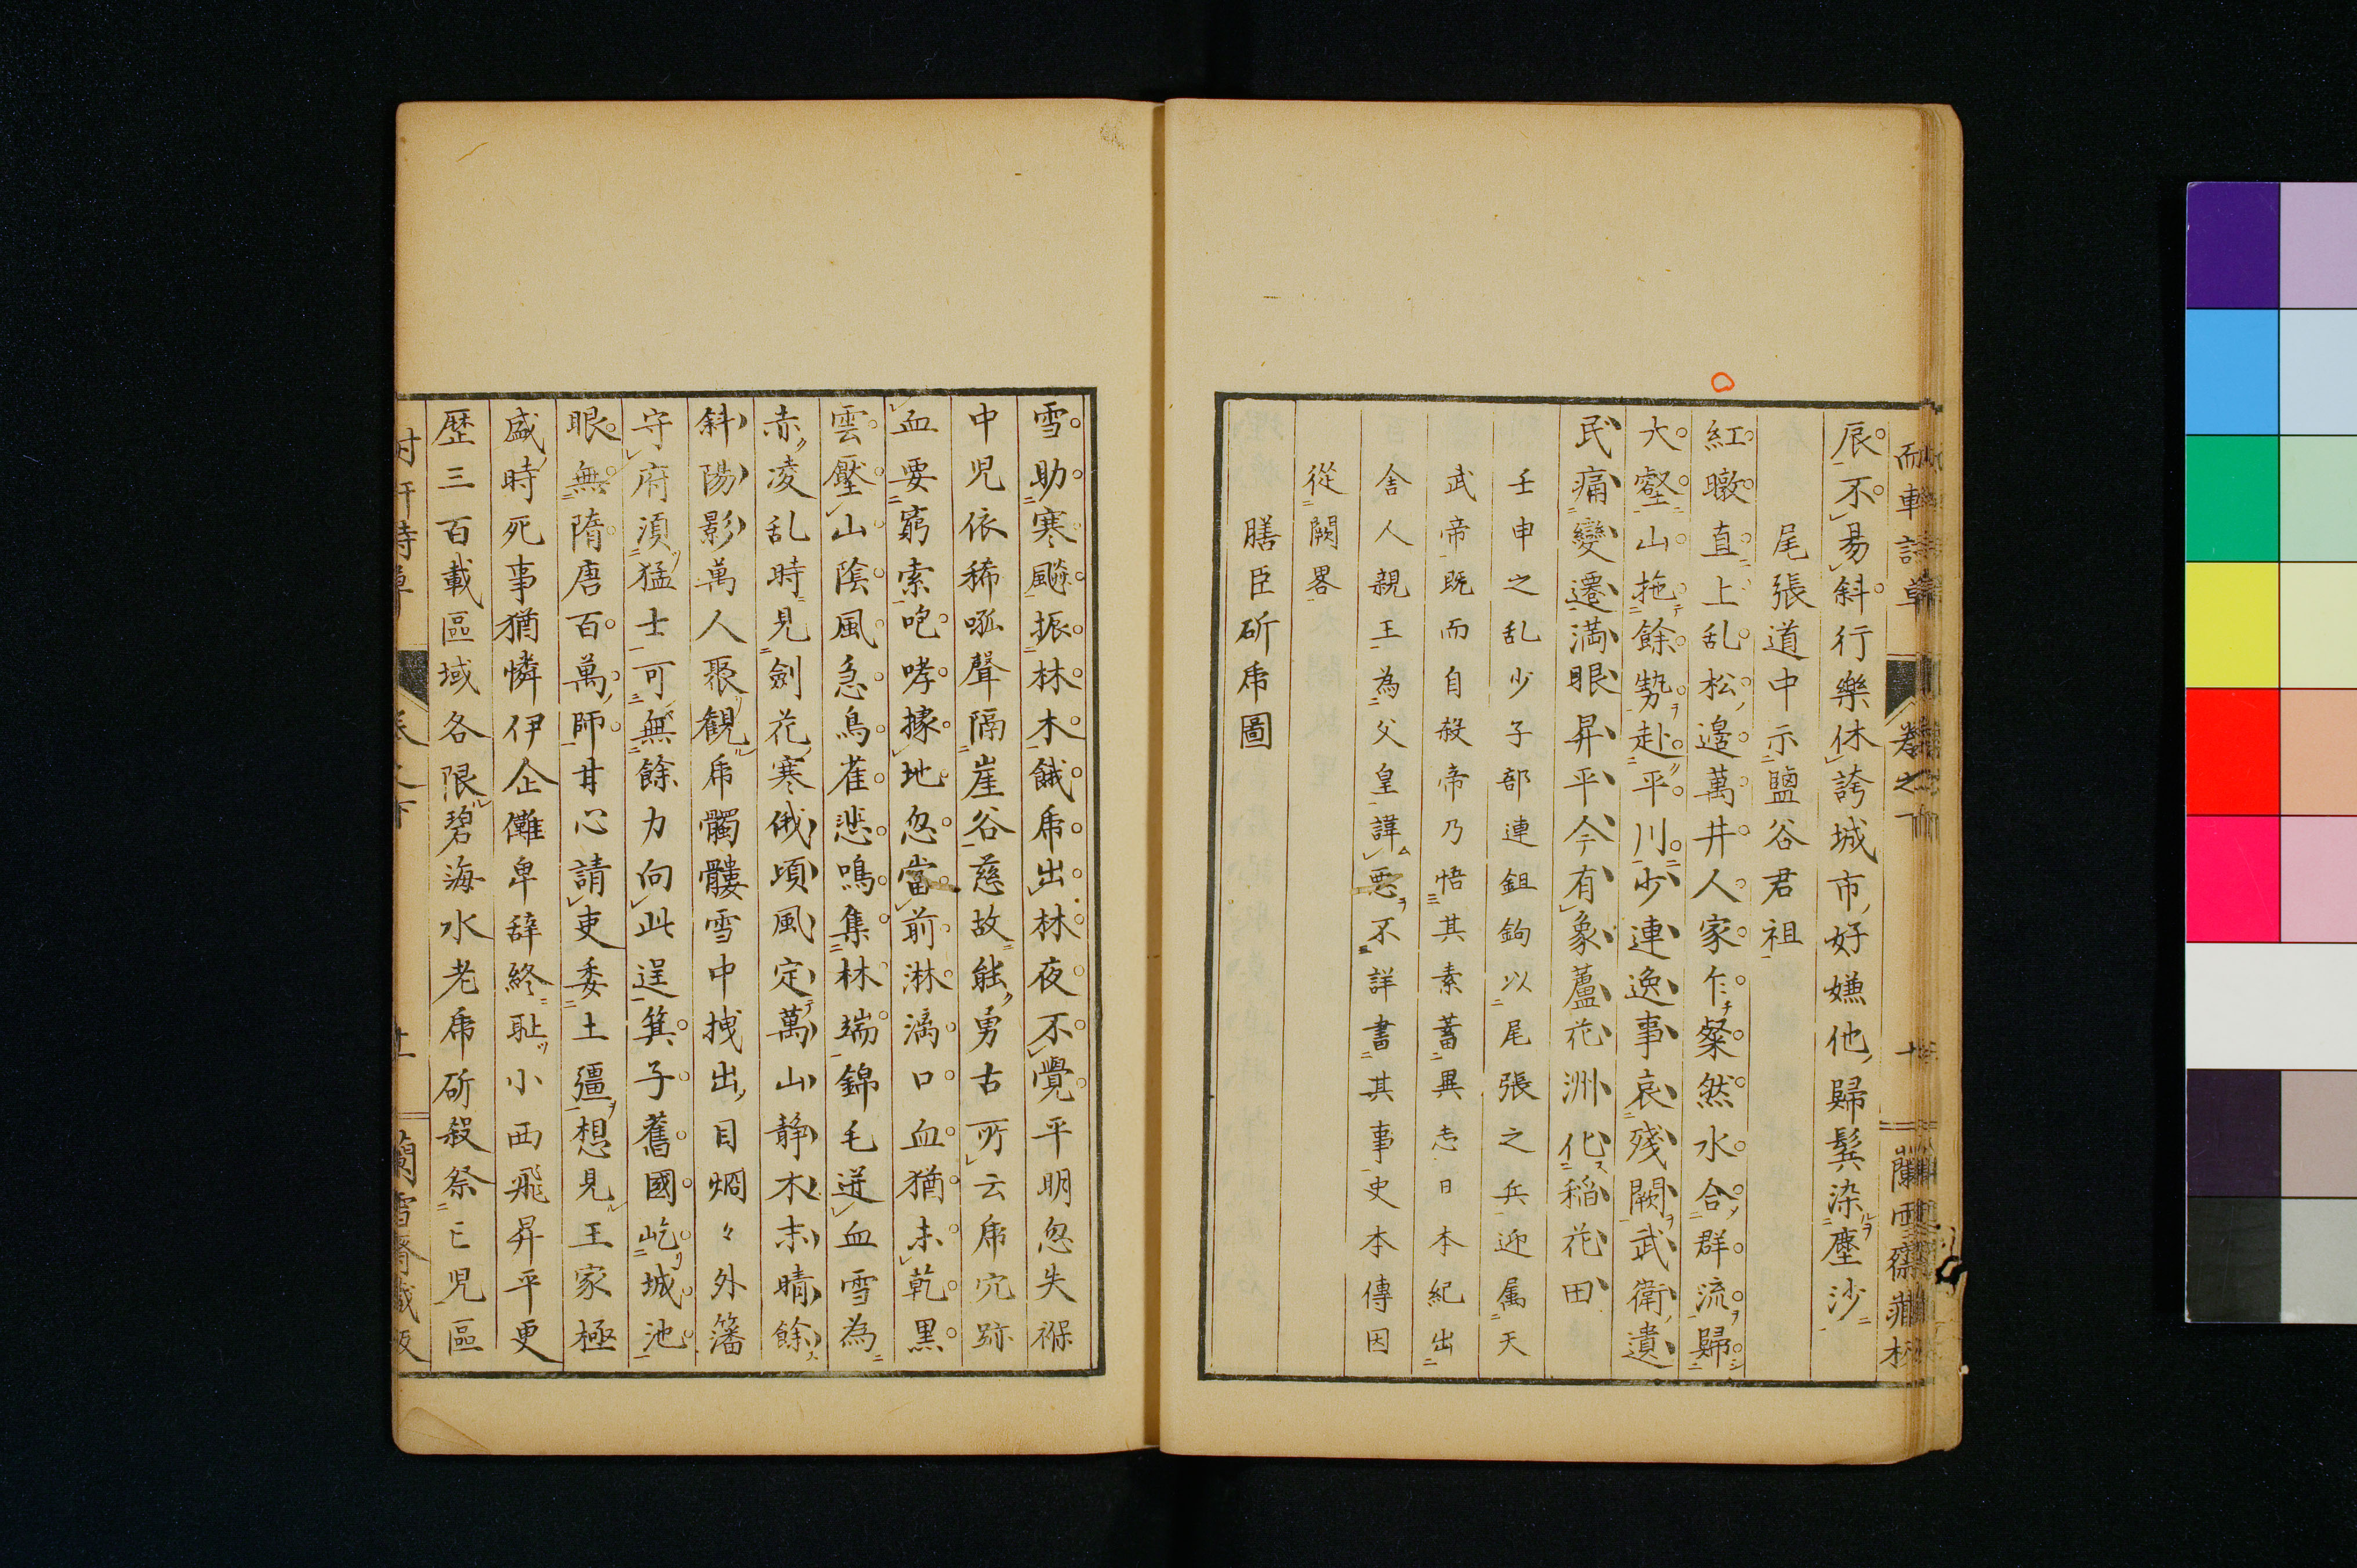 辰不易斜行樂休誇城市好嫌他歸鬓染塵沙
尾張道中示鹽谷君祖
紅暾直上乱松邊萬井人家乍粲然水合群流歸
大壑山拖餘勢赴平川少連逸事哀殘闕武衛遺
民痛變遷満眼昇平今有象蘆花洲化稲花田
壬申之乱少子部連鉏鉤以尾張之兵迎属天
武帝既而自殺帝乃悟其素蓄異志日本紀出
舍人親王為父皇諱悪不詳書其事史本傳因
從闕畧
膳臣斫乕圖
雪助寒飈振林木餓乕出林夜不覺平明忽失褓
中児依稀呱聲隔崖谷慈故能勇古所云乕穴跡
血要窮索咆哮據地忽當前淋漓口血猶未乾黒
雲壓山陰風急鳥雀悲鳴集林端錦毛迸血雪為
赤凌乱時見劍花寒俄頃風定萬山静木末晴餘
斜陽影萬人聚観乕髑髏雪中拽出目烱々外藩
守府湏猛士可無餘力向此逞箕子舊國屹城池
眼無隋唐百萬師甘心請吏委土疆想見王家極
盛時死事猶憐伊企儺卑辞終耻小西飛昇平更
歴三百載區域各限碧海水老乕斫殺祭亡児區